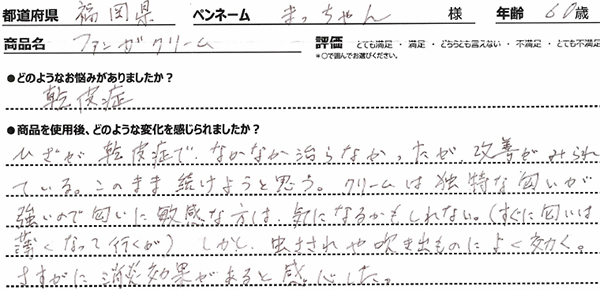 都道府県 福岡県 ペンネーム まっちゃん 様 年齢 60歳
商品名 ファンガクリーム 評価 とても満足・満足・どちらとも言えない・不満足・とても不満足
*○で囲んでお選びください。
●どのようなお悩みがありましたか?
乾皮症
●商品を使用後、どのような変化を感じられましたか?
ひざが乾皮症で、なかなか治らなかったが、改善がみられ
ている。このまま続けようと思う。クリームは独特な匂いが
強いので匂いに敏感な方は、気になるかもしれない。(すぐに匂いは
薄くなって行くが) しかし、虫さされや吹き出ものによく効く。
さすがに消炎効果があると感心した。